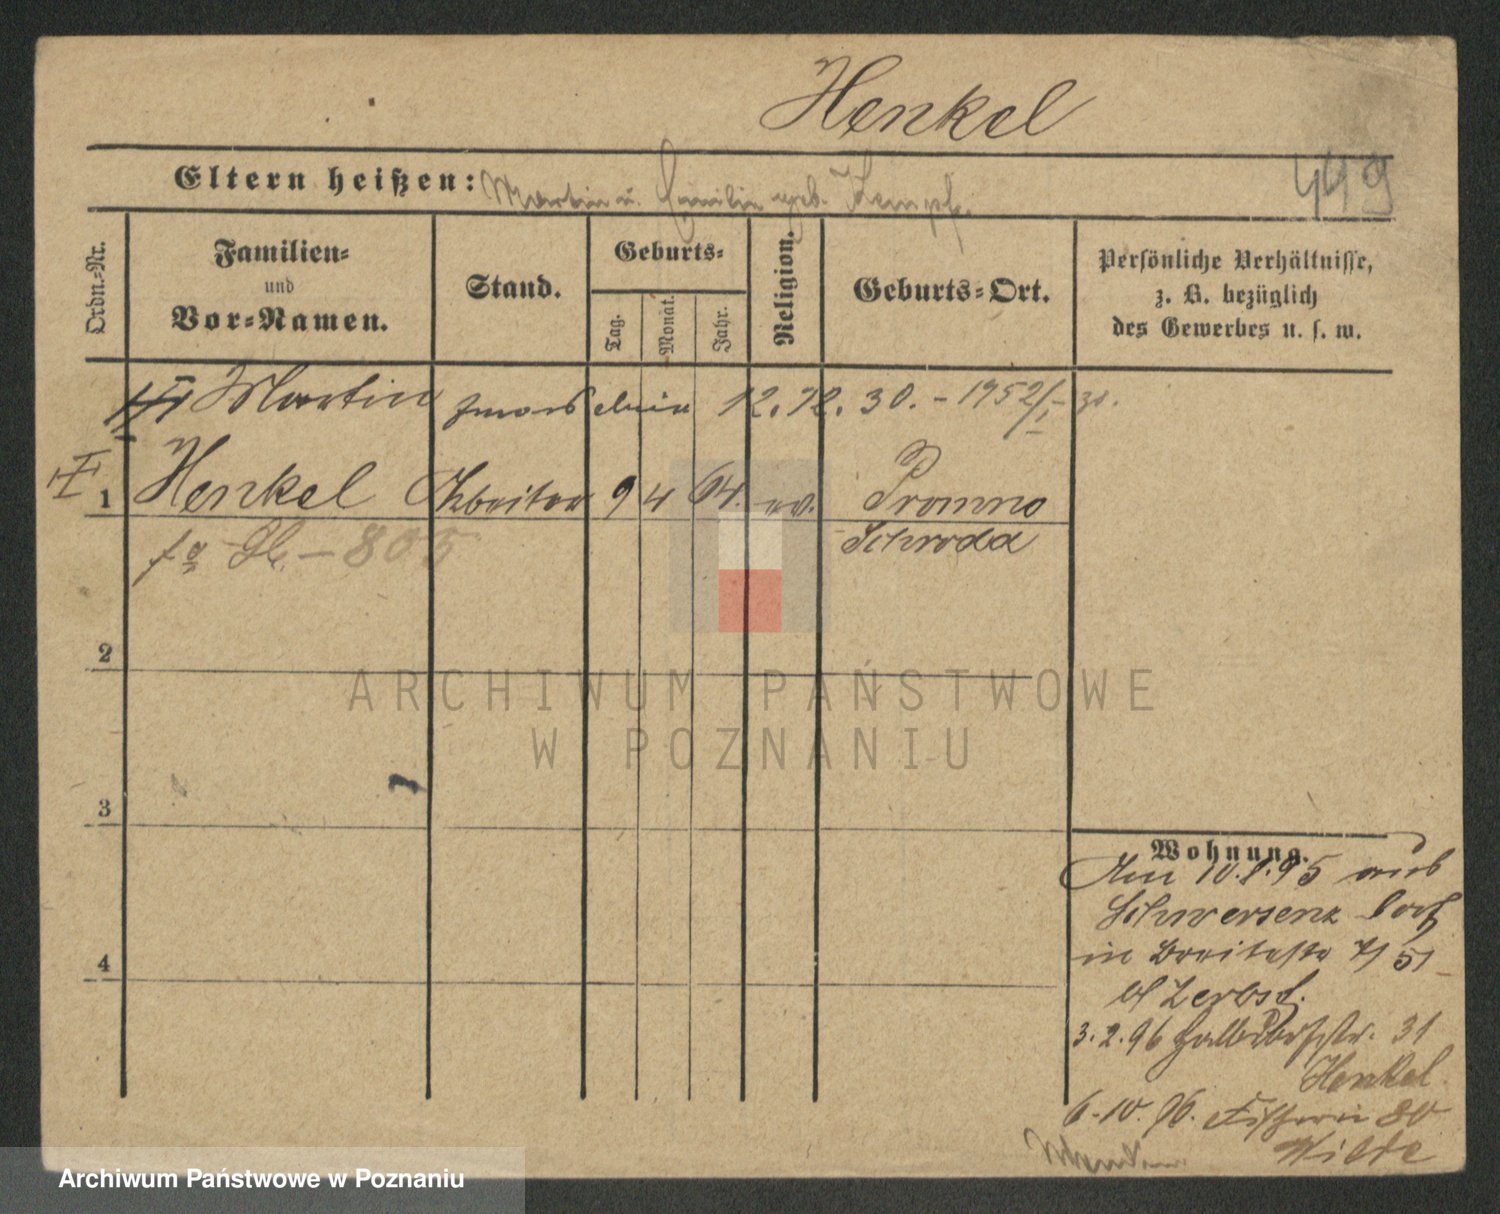 Henkel
449
Eltern heißen: Martin u. Emilie geb. Kempf.
Ordn.-Nr.
Familien-
und
Vor-Namen.
Stand.
Geburts-
Tag.
Monat.
Jahr.
Religion.
Geburts-Ort.
Persönliche Verhältnisse,
z. B. bezüglich
des Gewerbes u. s. w.
III Martin 12.12.30. - 1952/
II 1 Henkel Arbeiter 9 4 64. ev. Promno
Schroda
- 805
2
3
4
ARCHIWUM PAŃSTWOWE
W POZNANIU
Wohnung.
Am 10.8.95 aus
Schwersenz Dorf
in Breitestr 51
bf Zerbst.
3.2.96 Halbdorfstr. 31
Henkel
6.10.96. Fischerei 80
Wilde
Archiwum Państwowe w Poznaniu